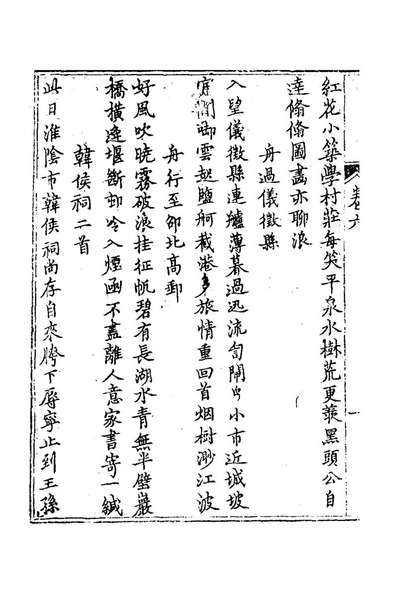 紅花小築學村莊每笑平泉水樹荒更羨黑頭公自
達脩脩圖畫亦聊浪
舟過儀徵縣
入望儀徵縣連艫薄暮過迅流訇閘出小市近城坡
官閣啣雲起鹽舸截港多旅情重回首烟樹渺江波
舟行至邵北高郵
好風吹曉霧破浪挂征帆碧有長湖水青無半壁巖
橋橫邊堰斷却冷入煙函不盡離人意家書寄一緘
韓侯祠二首
此日淮陰市韓侯祠尚存自來胯下辱寧止到王孫
卷六